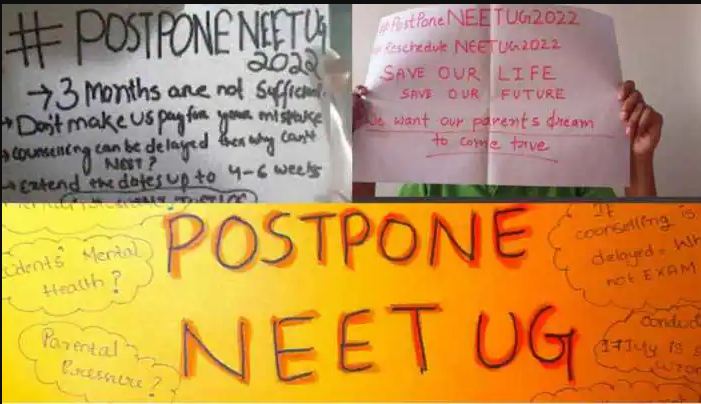 #POSTPONE NEET UG
2022
→ 3 Months are not sufficient.
→ Don't make us pay for your mistake
→ counseling can be delayed then why can't
NEET ?
→ extend the dates up to 4-6 weeks
#PostPone NEETUG2022
Reschedule NEETUG2022
SAVE OUR LIFE
SAVE OUR FUTURE
We want our parents dream
to come true
POSTPONE
NEET UG
Mental
Health ?
Parental
Pressure ?
If
counselling is
delayed =
not EXAM
17 July is